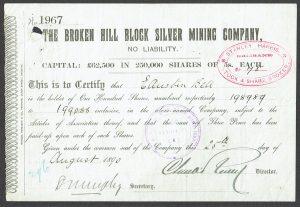 No. 1967
THE BROKEN HILL BLOCK SILVER MINING COMPANY,
NO LIABILITY.
CAPITAL: £62,500 IN 250,000 SHARES OF 5s. EACH.
STANLEY HARRIS
STOCK & SHARE BROKER
This is to Certify that
is the holder of One Hundred Shares, numbered respectively 198989
to in the above-named Company, subject to the
Articles of Association thereof, and that the sum of Three Pence has been
paid up upon each of such Shares.
Given under the common seal of the Company this day of
August 1890
Director.
Secretary.